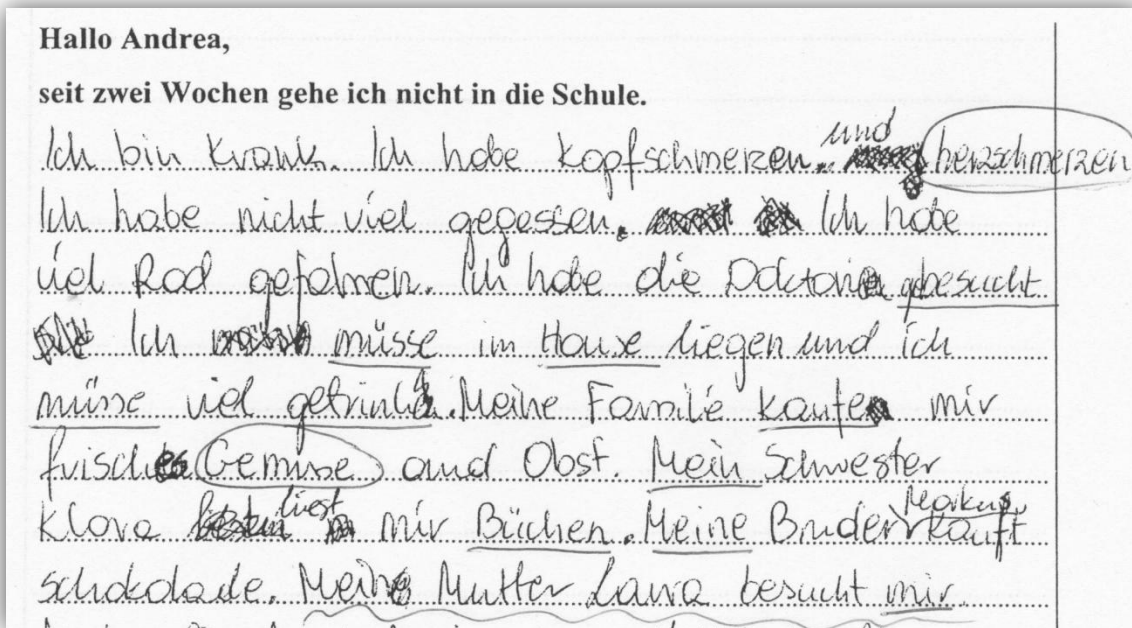 Hallo Andrea,
seit zwei Wochen gehe ich nicht in die Schule.
Ich bin Krank. Ich habe Kopfschmerzen. und herzschmerzen
Ich habe nicht viel gegessen. Ich habe
viel Rad gefahren. Ich habe die Doktorin gebesucht
Ich müsse im Hause liegen und ich
müsse viel Meine Familie mir
frisches Gemüse und Obst. Mein Schwester
Klara liest mir Büchen. Meine Bruder Markus kauft
schokolade. Meine Mutter Laura besucht mir